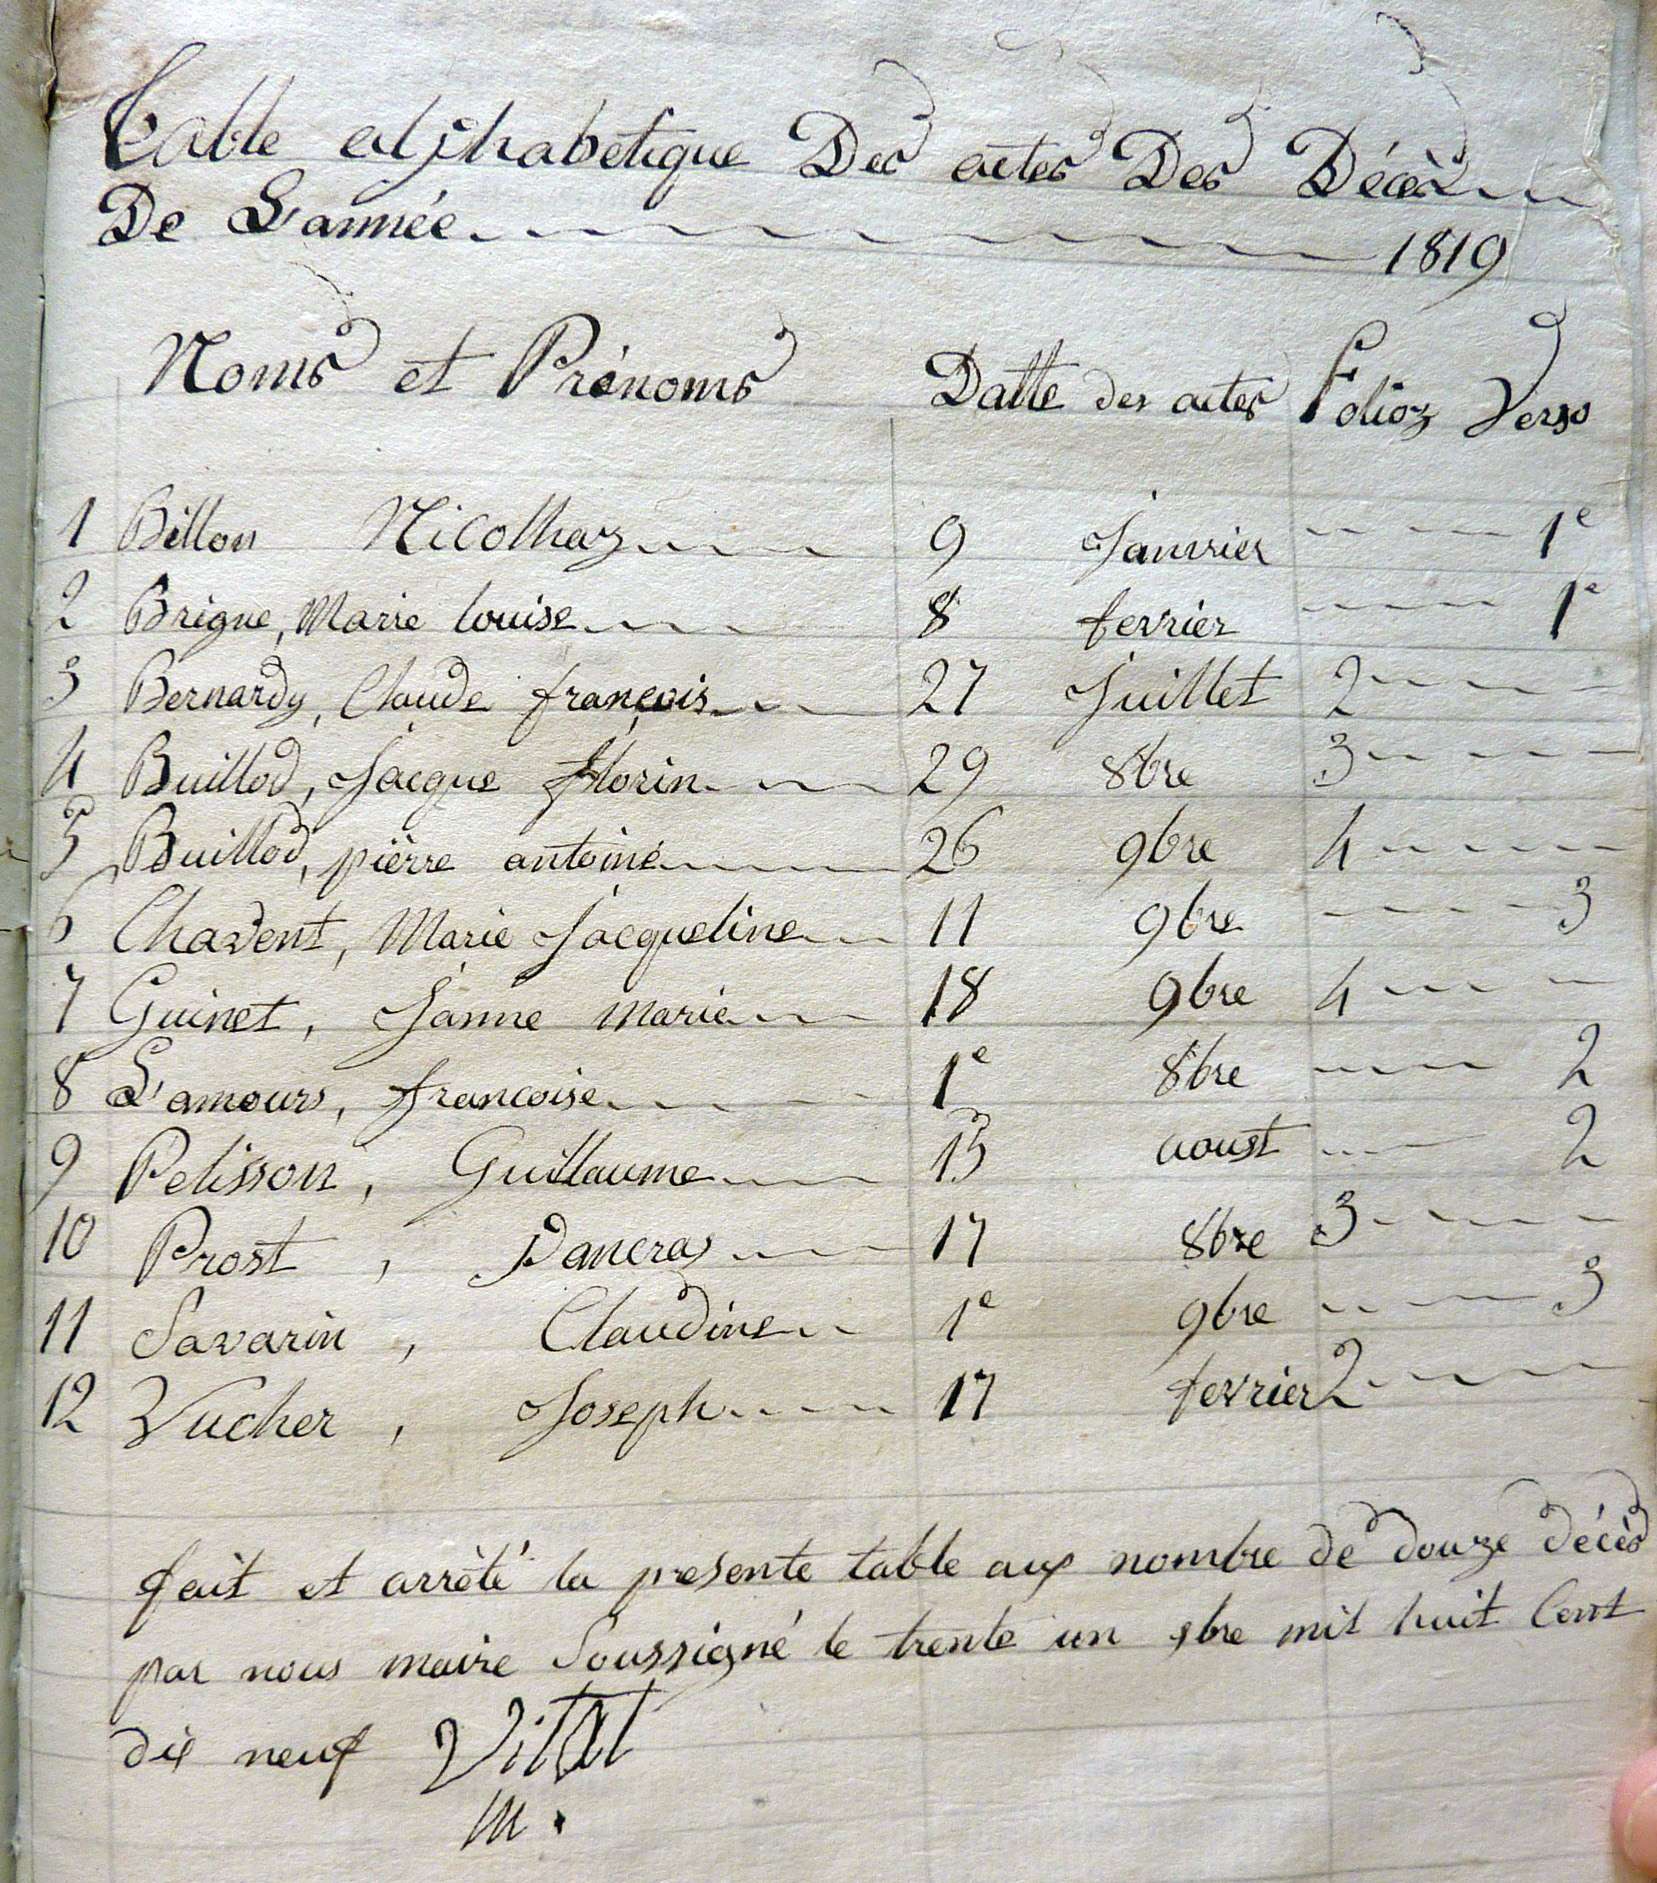 Table alphabétique Des actes Des Décès
De L'année 1819
Noms et Prénoms Datte des actes Folioz Verso
1 Billon Nicollhaz 9 Janvrier 1e
2 Brigne, Marie louise 8 fevrier 1e
3 Bernardy, Claude françois 27 Juillet 2
4 Buillod, Jacque florin 29 8bre 3
5 Buillod, pièrre antoine 26 9bre 4
6 Chavent, Marie Jacqueline 11 9bre 3
7 Guinet, Janne marie 18 9bre 4
8 L'amours, francoise 1e 8bre 2
9 Pelisson, Guillaume 15 aoust 2
10 Prost, Pancras 17 8bre 3
11 Savarin, Claudine 1e 9bre 3
12 Vucher, Joseph 17 fevrier 2
fait et arrèté la presente table aux nombre de douze décès
par nous maire Soussigné le trente un bre mil huit Cent
dix neuf Vital
m.